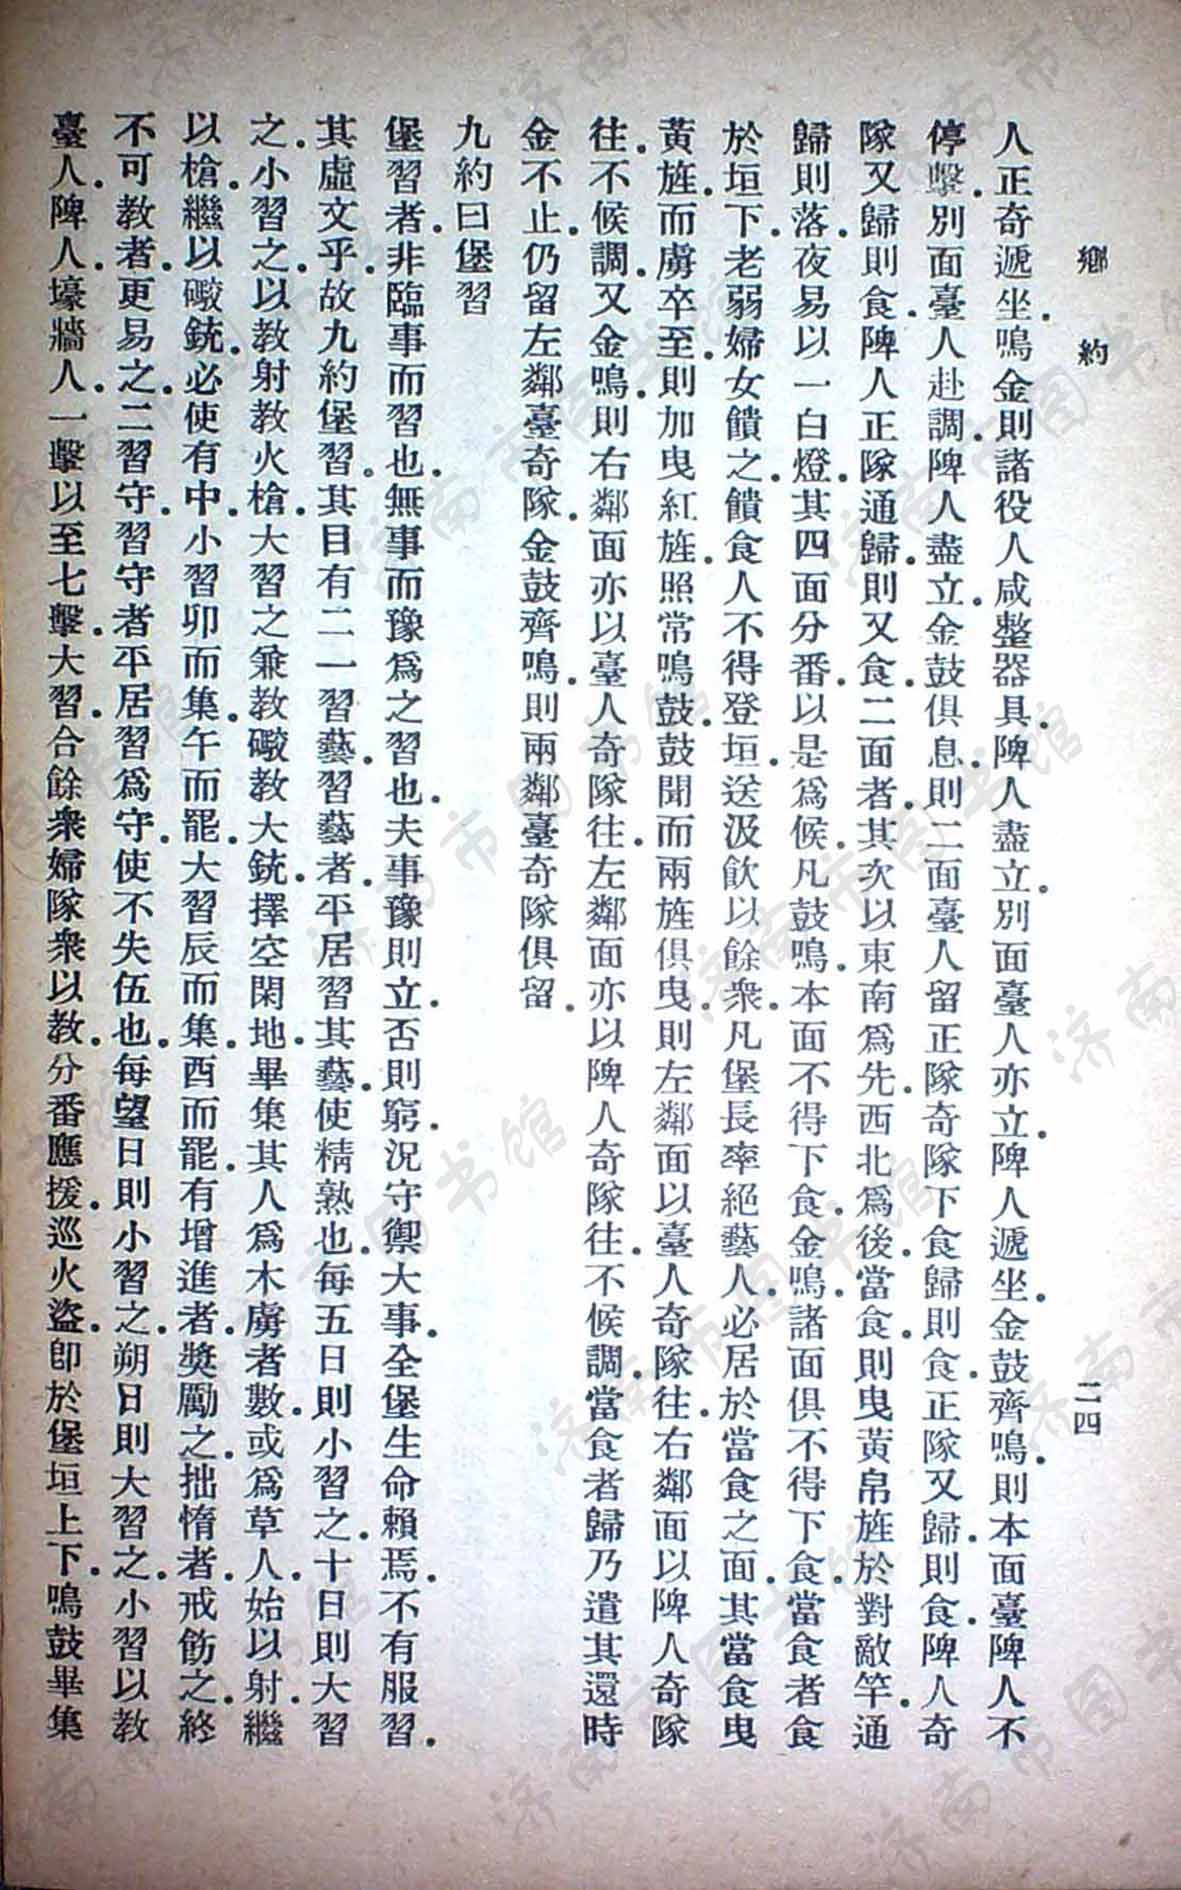 鄉約
二四
人正奇遞坐.鳴金則諸役人咸整器具.陴人盡立.別面臺人亦立.陴人遞坐.金鼓齊鳴.則本面臺陴人不
停擊.別面臺人赴調.陴人盡立.金鼓俱息.則二面臺人留正隊奇隊下食歸則食.正隊又歸.則食.陴人奇
隊又歸則食.陴人正隊通歸.則又食.二面者.其次以東南爲先.西北爲後.當食.則曳黃帛旌於對敵竿.通
歸則落.夜易以一白燈.其四面分番.以是爲候.凡鼓鳴.本面不得下食.金鳴.諸面俱不得下食.當食者食
於垣下.老弱婦女饋之.饋食人不得登垣.送汲飮以餘衆.凡堡長率絕藝人.必居於當食之面.其當食曳
黃旌.而虜卒至.則加曳紅旌.照常鳴鼓.鼓聞而兩旌俱曳.則左鄰面以臺人奇隊往.右鄰面以陴人奇隊
往.不候調.又金鳴.則右鄰面亦以臺人奇隊往.左鄰面亦以陴人奇隊往.不候調.當食者歸.乃遣其還時
金不止.仍留左鄰臺奇隊.金鼓齊鳴.則兩鄰臺奇隊俱留.
九約曰堡習
堡習者.非臨事而習也.無事而豫爲之習也.夫事豫則立.否則窮.況守禦大事.全堡生命賴焉.不有服習.
其虛文乎.故九約堡習。其目有二一習藝.習藝者.平居習其藝.使精熟也.每五日則小習之.十日則大習
之.小習之.以敎射敎火槍.大習之兼敎礮敎大銃.擇空閑地.畢集其人爲木虜者數.或爲草人.始以射.繼
以槍.繼以礮銃.必使有中.小習卯而集.午而罷.大習辰而集.酉而罷.有增進者.獎勵之.拙惰者.戒飭之.終
不可敎者.更易之.二習守.習守者平居習爲守.使不失伍也.每望日則小習之.朔日則大習之.小習以敎
臺人.陴人.壕牆人.一擊以至七擊.大習.合餘衆婦隊衆以敎.分番應援.巡火盜.卽於堡垣上下.鳴鼓畢集